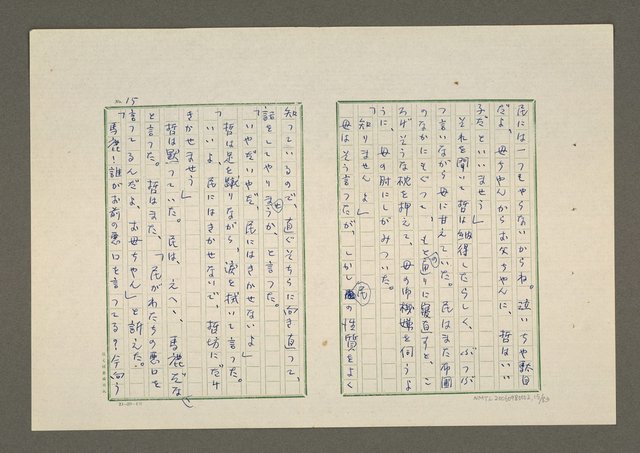 民には一つもやらないからね。泣いちや駄目
だよ。母ちやんからお父ちやんに、哲はいい
子だといいませう」
それを聞いて哲は納得したらしく、ぶつぶ
つ言いながら母に甘えていた。民はまた布団
のなかにもぐつて、もと通りに寝直すと、こ
ろげそうな枕を押えて、母の御機嫌を伺うよ
うに、母の肘にしがみついた。
「知りませんよ」
母はそう言つたが、しかし民の性質をよく
No. 15
知つているので、直ぐそちらに向き直つて、
話をしてやりませうか、と言つた。
「いやだいやだ、民にはきかせないよ」
哲は足を蹴りながら、涙を拭いて言つた。
「いいよ、民にはきかせないで、哲坊にだけ
きかせませう」
哲は黙つていた。民は、えへへ、馬鹿だな
と言つた。哲はまた、「民がわたちの悪口を
言つてるんだよ、お母ちやん」と訴えた。
「馬鹿！誰がお前の悪口を言つてる？今向う
NMTL20050980002,15/23